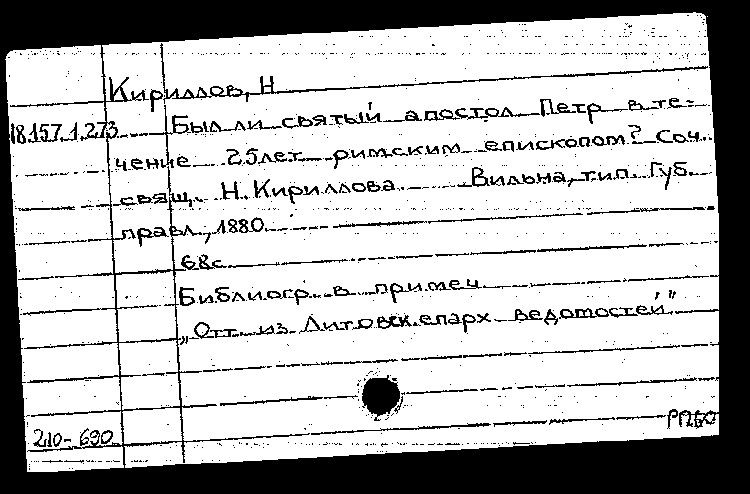 Кириллов, Н
18.157.1.273 Был ли святый апостол Петр в те-
чение 25 лет римским епископом? Соч.
свящ. Н. Кириллова. Вильна, тип. Губ.
правл., 1880.
68с.
Библиогр. в примеч.
„Отт. из Литовск. епарх. ведомостей"
210-690